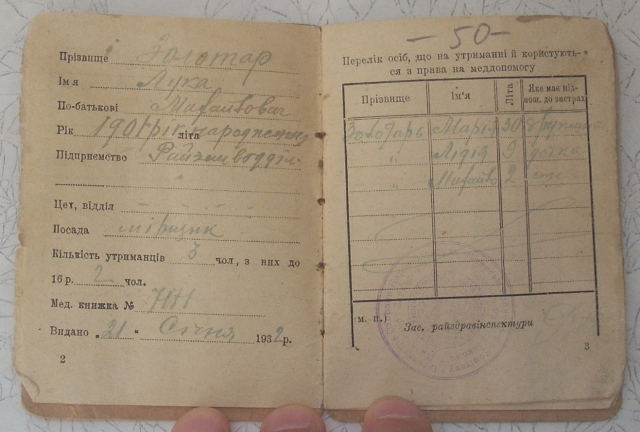 Прізвище Золотар
Ім'я Лука
По-батькові Михайлович
Рік 1901 рік народження літа
Підприємство Райземвідділ
Цех, відділ
Посада мірщик
Кількість утриманців 3 чол., з них до
16 р. 2 чол.
Мед. книжка №
Видано „21" Січня 1932 р.
2
-50-
Перелік осіб, що на утриманні й користують-
ся з права на меддопомогу
Прізвище Ім'я Літа Яке має від-
нош. до застрах.
Золотарь Марія 30 дружина
" Лідія 9 дочка
" Михайло 2 син
м. п.)
Зав. райздравінспектури
3